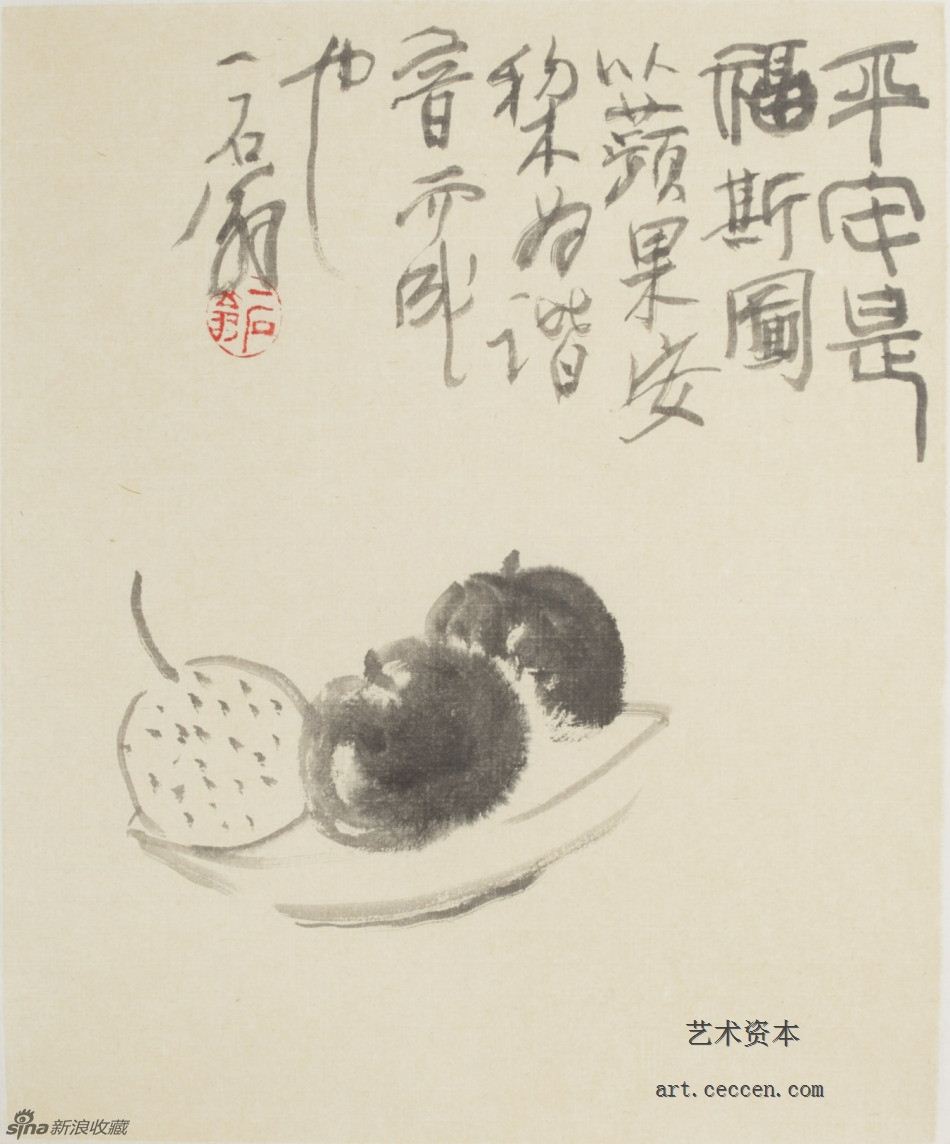 平安是
福斯圖
以蘋果安
梨為諧
音而成
也
一石翁
一石翁
艺术资本
art.ceccen.com
sina新浪收藏